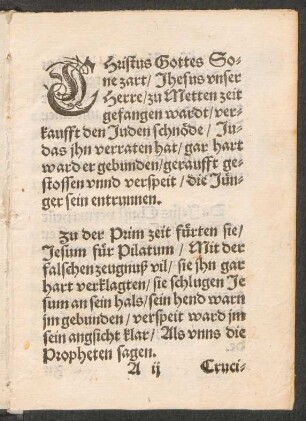 CHristus Gottes So-
ne zart/ Jhesus vnser
Herre/ zu Metten zeit
gefangen wardt/ ver-
kaufft den Juden schnöde/ Ju-
das jhn verraten hat/ gar hart
ward er gebunden/ geraufft ge-
stossen vnnd verspeit/ die Jün-
ger sein entrunnen.
Zu der Prim zeit fürten sie/
Jesum für Pilatum/ Mit der
falschen zeugnuß vil/ sie jhn gar
hart verklagten/ sie schlugen Je
sum an sein hals/ sein hend warn
jm gebunden/ verspeit ward jm
sein angsicht klar/ Als vnns die
Propheten sagen.
A ij Cruci-